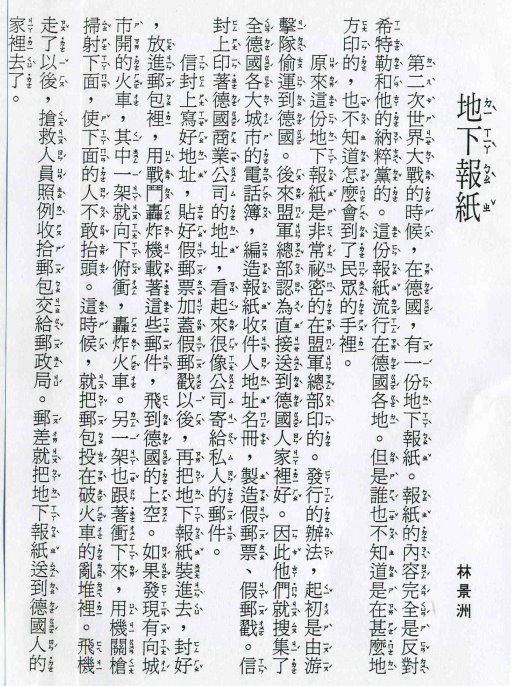 地下報紙
林景洲
第二次世界大戰的時候，在德國，有一份地下報紙。報紙的內容完全是反對
希特勒和他的納粹黨的。這份報紙流行在德國各地。但是誰也不知道是在甚麼地
方印的，也不知道怎麼會到了民眾的手裡。
原來這份地下報紙是非常祕密的在盟軍總部印的。發行的辦法，起初是由游
擊隊偷運到德國。後來盟軍總部認為直接送到德國人家裡好。因此他們就搜集了
全德國各大城市的電話簿，編造報紙收件人地址名冊，製造假郵票、假郵戳。信
封上印著德國商業公司的地址，看起來很像公司寄給私人的郵件。
信封上寫好地址，貼好假郵票加蓋假郵戳以後，再把地下報紙裝進去，封好
，放進郵包裡，用戰鬥轟炸機載著這些郵件，飛到德國的上空。如果發現有向城
市開的火車，其中一架就向下俯衝，轟炸火車。另一架也跟著衝下來，用機關槍
掃射下面，使下面的人不敢抬頭。這時候，就把郵包投在破火車的亂堆裡。飛機
走了以後，搶救人員照例收拾郵包交給郵政局。郵差就把地下報紙送到德國人的
家裡去了。